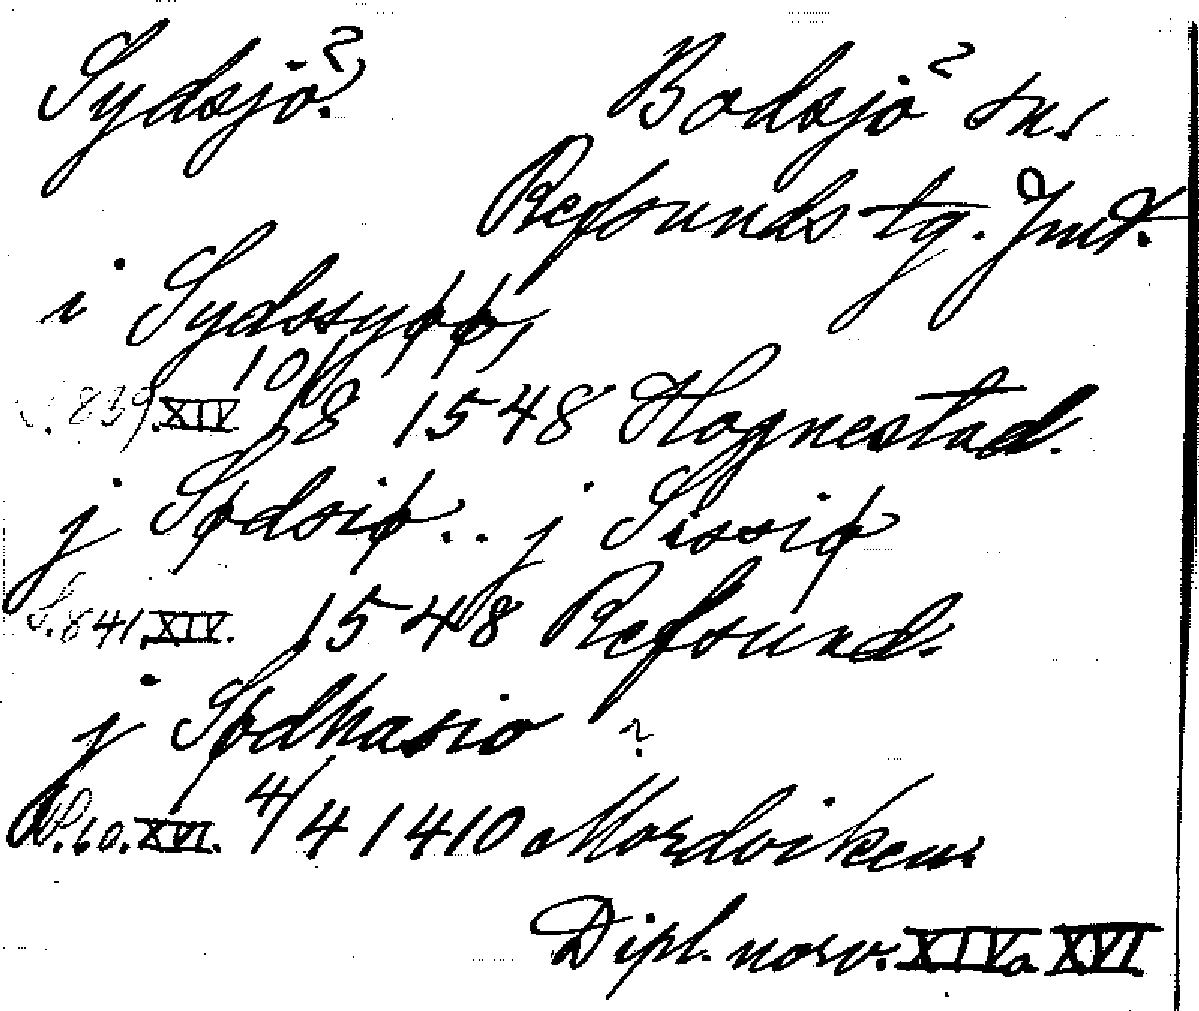 Sydsjö? Bodsjö? sn.
Refsunds tg. Jmt.
i Sydssyøø,
S. 839. XIV 10/8 1548 Hognestad.
j Sødsiø.. j Sissiø
S. 841. XIV. 1548 Refsund.
j Sødhasio ?
S. 60. XVI. 4/4 1410 Mordviken
Dipl. norv. XIV a XVI